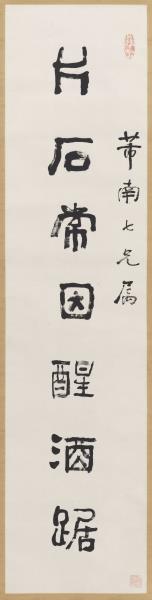 芾南七兄属
片石常因醒酒踞